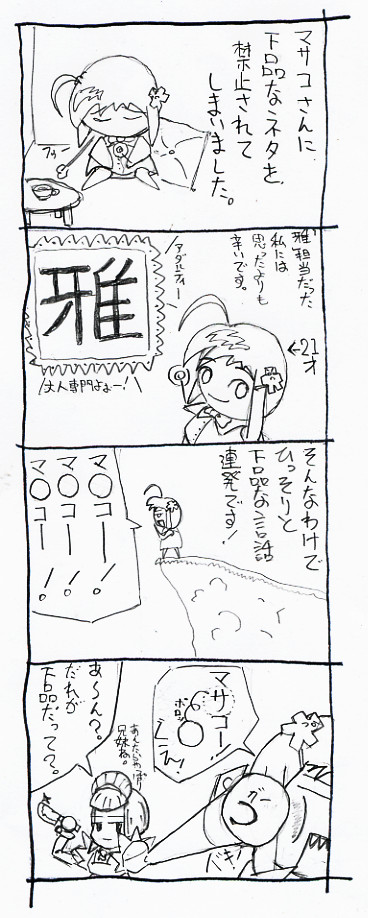 マサコさんに
下品なネタを
禁止されて
しまいました。
フゥー
雅担当だった
私には
思ったよりも
辛いです。
←21才
アダルティー
雅
大人専門よぉー!
そんなわけで
ひっそりと
下品な言語
連発です!
マ○コーー!
マ○コーー!
マ○コーー!
マサコー!
ポロッ
バキ!
あ〜ん?
だれが
下品だって?。
兄妹ね。